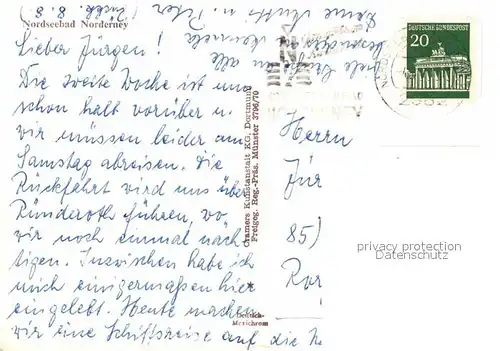 Nordseebad Norderney
Lieber Jürgen!
Die zweite Woche ist nun
schon halb vorüber u.
wir müssen leider am
Samstag abreisen. Die
Rückfahrt wird uns über
Ründeroth führen, wo
wir noch einmal näch-
tigen. Inzwischen habe ich
mich einigermaßen hier
eingelebt. Heute machen
wir eine Schiffsreise auf die
Viele
alle
Deine Mutti u. Peter
Cramers Kunstanstalt KG, Dortmund
Freigeg. Reg.-Präs. Münster 3796/70
Merichrom
DEUTSCHE BUNDESPOST
20
2982
Herrn
Jür
85)
privacy protection
Datenschutz